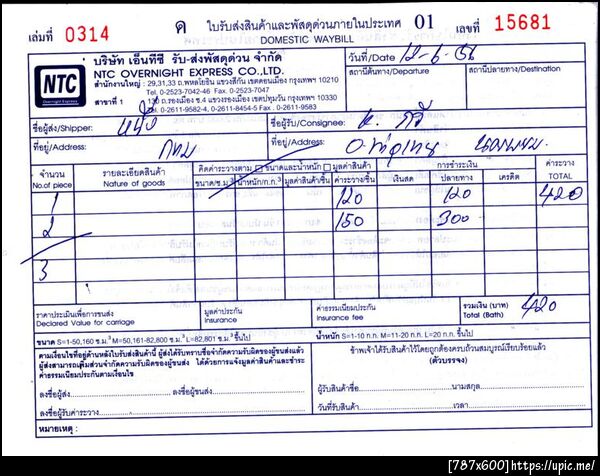 เล่มที่ 0314 ค ใบรับส่งสินค้าและพัสดุด่วนภายในประเทศ 01 เลขที่ 15681
DOMESTIC WAYBILL
NTC
Overnight Express
บริษัท เอ็นทีซี รับ-ส่งพัสดุด่วน จำกัด
NTC OVERNIGHT EXPRESS CO.,LTD.
สำนักงานใหญ่ : 29,31,33 ถ.พหลโยธิน แขวงสีกัน เขตดอนเมือง กรุงเทพฯ 10210
Tel. 0-2523-7042-46 Fax. 0-2523-7047
สาขาที่ 1 130 ถ.รองเมือง ซ.4 แขวงรองเมือง เขตปทุมวัน กรุงเทพฯ 10330
Tel. 0-2611-9582-4, 0-2611-8454-5 Fax. 0-2611-9583
วันที่/Date 12-6-56
สถานีต้นทาง/Departure สถานีปลายทาง/Destination
ชื่อผู้ส่ง/Shipper: ชื่อผู้รับ/Consignee:
ที่อยู่/Address: กทม ที่อยู่/Address:
จำนวน No.of piece
รายละเอียดสินค้า Nature of goods
คิดค่าระวางตาม ขนาดและน้ำหนัก มูลค่าสินค้า
ขนาด/ซ.ม.³ น้ำหนัก/ก.ก.³ มูลค่าสินค้า/ชิ้น ค่าระวาง/ชิ้น
การชำระเงิน
เงินสด ปลายทาง เครดิต
ค่าระวาง TOTAL
1 120 120 420
2 150 300
3
ราคาประเมินเพื่อการขนส่ง
Declared Value for carriage
มูลค่าประกัน
Insurance
ค่าธรรมเนียมประกัน
Insurance fee
รวมเงิน (บาท)
Total (Bath) 420
ขนาด S=1-50,160 ซ.ม.³ M=50,161-82,800 ซ.ม.³ L=82,801 ซ.ม.³ ขึ้นไป น้ำหนัก S=1-10 ก.ก. M=11-20 ก.ก. L=20 ก.ก. ขึ้นไป
ตามเงื่อนไขที่อยู่ด้านหลังใบรับส่งสินค้านี้ ผู้ส่งได้รับทราบข้อจำกัดความรับผิดของผู้ขนส่งแล้ว
ผู้ส่งสามารถเพิ่มส่วนจำกัดความรับผิดของผู้ขนส่ง ได้ด้วยการแจ้งมูลค่าสินค้าและชำระ
ค่าธรรมเนียมประกันตามเงื่อนไข
ลงชื่อผู้ส่ง ลงชื่อผู้รับ
ลงชื่อผู้รับค่าระวาง
ข้าพเจ้าได้รับสินค้าไว้โดยถูกต้องครบถ้วนสมบูรณ์เรียบร้อยแล้ว
(ตัวบรรจง)
ผู้รับสินค้าชื่อ นามสกุล
วันที่รับสินค้า เวลา
หมายเหตุ :
[787x600]https://upic.me/